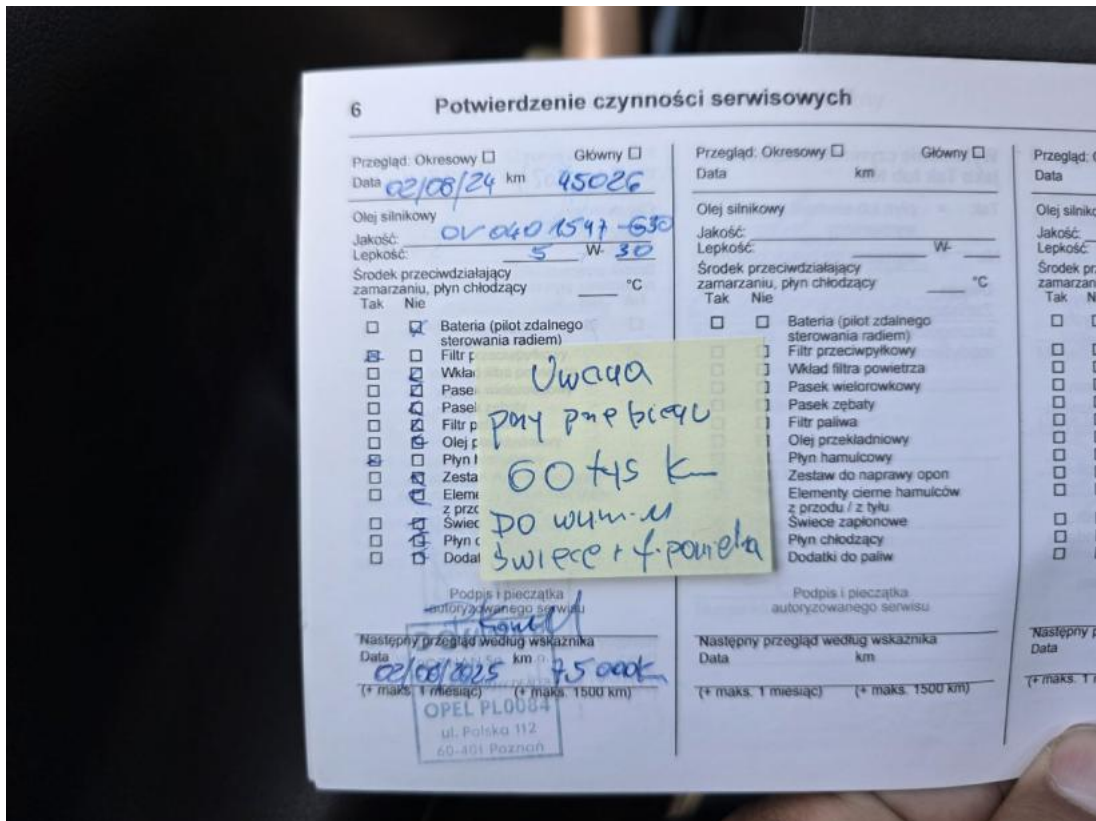 6 Potwierdzenie czynności serwisowych
Przegląd: Okresowy ☐ Główny ☐
Data 02/08/24 km 45026
Olej silnikowy
Jakość: OV 040 1547 -G30
Lepkość: 5 W- 30
Środek przeciwdziałający
zamarzaniu, płyn chłodzący °C
Tak Nie
Bateria (pilot zdalnego
sterowania radiem)
Filtr p
Wkła
Pase
Pase
Filtr p
Olej p
Płyn
Zesta
Eleme
z przo
Świec
Płyn c
Dodat
Uwaga
przy przebiegu
60 tys k
DO
świece + f. powietrza
Podpis i pieczątka
autoryzowanego serwisu
Następny przegląd według wskaźnika
Data 02/08/2025 km 75 000k
(+ maks. 1 miesiąc) (+ maks. 1500 km)
OPEL PL0084
ul. Polska 112
60-401 Poznań
Przegląd: Okresowy ☐ Główny ☐
Data km
Olej silnikowy
Jakość:
Lepkość: W-
Środek przeciwdziałający
zamarzaniu, płyn chłodzący °C
Tak Nie
Bateria (pilot zdalnego
sterowania radiem)
Filtr przeciwpyłkowy
Wkład filtra powietrza
Pasek wielorowkowy
Pasek zębaty
Filtr paliwa
Olej przekładniowy
Płyn hamulcowy
Zestaw do naprawy opon
Elementy cierne hamulców
z przodu / z tyłu
Świece zapłonowe
Płyn chłodzący
Dodatki do paliw
Podpis i pieczątka
autoryzowanego serwisu
Następny przegląd według wskaźnika
Data km
(+ maks. 1 miesiąc) (+ maks. 1500 km)
Przegląd:
Data
Olej silniko
Jakość:
Lepkość:
Środek pr
zamarzan
Tak N
Następny p
Data
(+ maks. 1